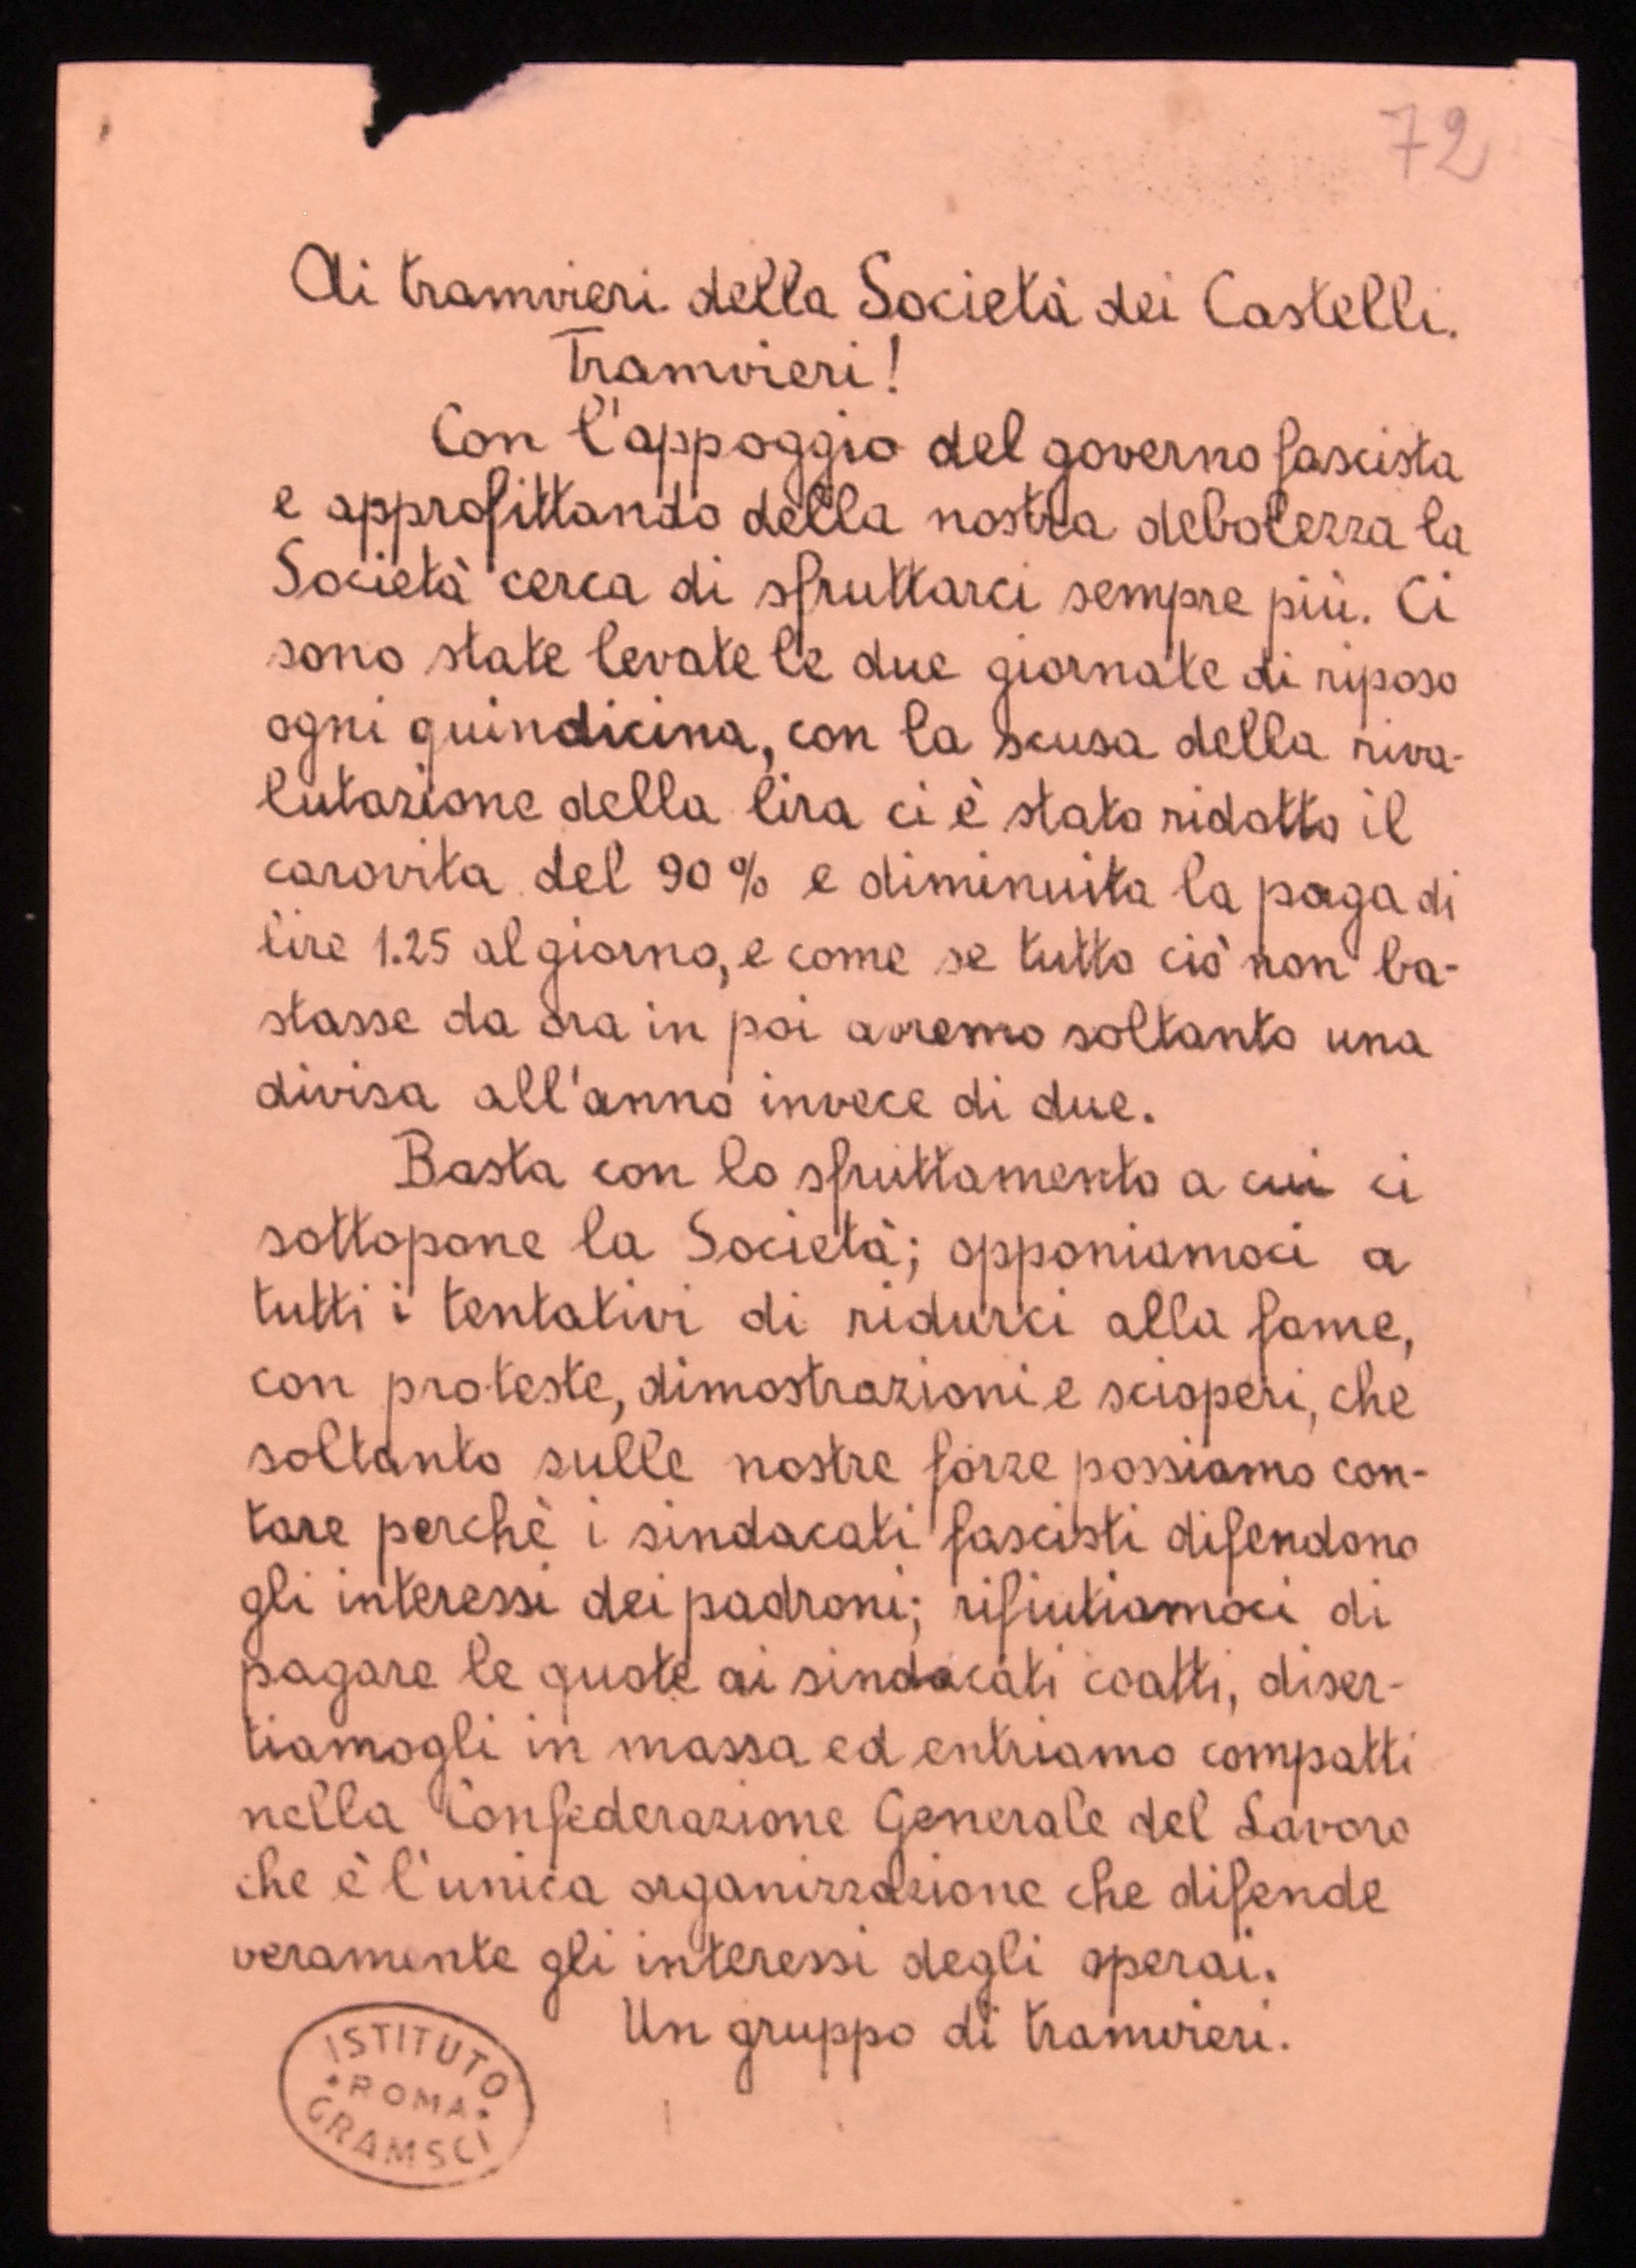 72
Ai tramvieri della Società dei Castelli.
Tramvieri!
Con l'appoggio del governo fascista
e approfittando della nostra debolezza la
Società cerca di sfruttarci sempre più. Ci
sono state levate le due giornate di riposo
ogni quindicina, con la scusa della riva-
lutazione della lira ci è stato ridotto il
carovita del 90% e diminuita la paga di
lire 1.25 al giorno, e come se tutto ciò non ba-
stasse da ora in poi avremo soltanto una
divisa all'anno invece di due.
Basta con lo sfruttamento a cui ci
sottopone la Società; opponiamoci a
tutti i tentativi di ridurci alla fame,
con proteste, dimostrazioni e scioperi, che
soltanto sulle nostre forze possiamo con-
tare perchè i sindacati fascisti difendono
gli interessi dei padroni; rifiutiamoci di
pagare le quote ai sindacati coatti, diser-
tiamogli in massa ed entriamo compatti
nella Confederazione Generale del Lavoro
che è l'unica organizzazione che difende
veramente gli interessi degli operai.
Un gruppo di tramvieri.
ISTITUTO
• ROMA •
GRAMSCI